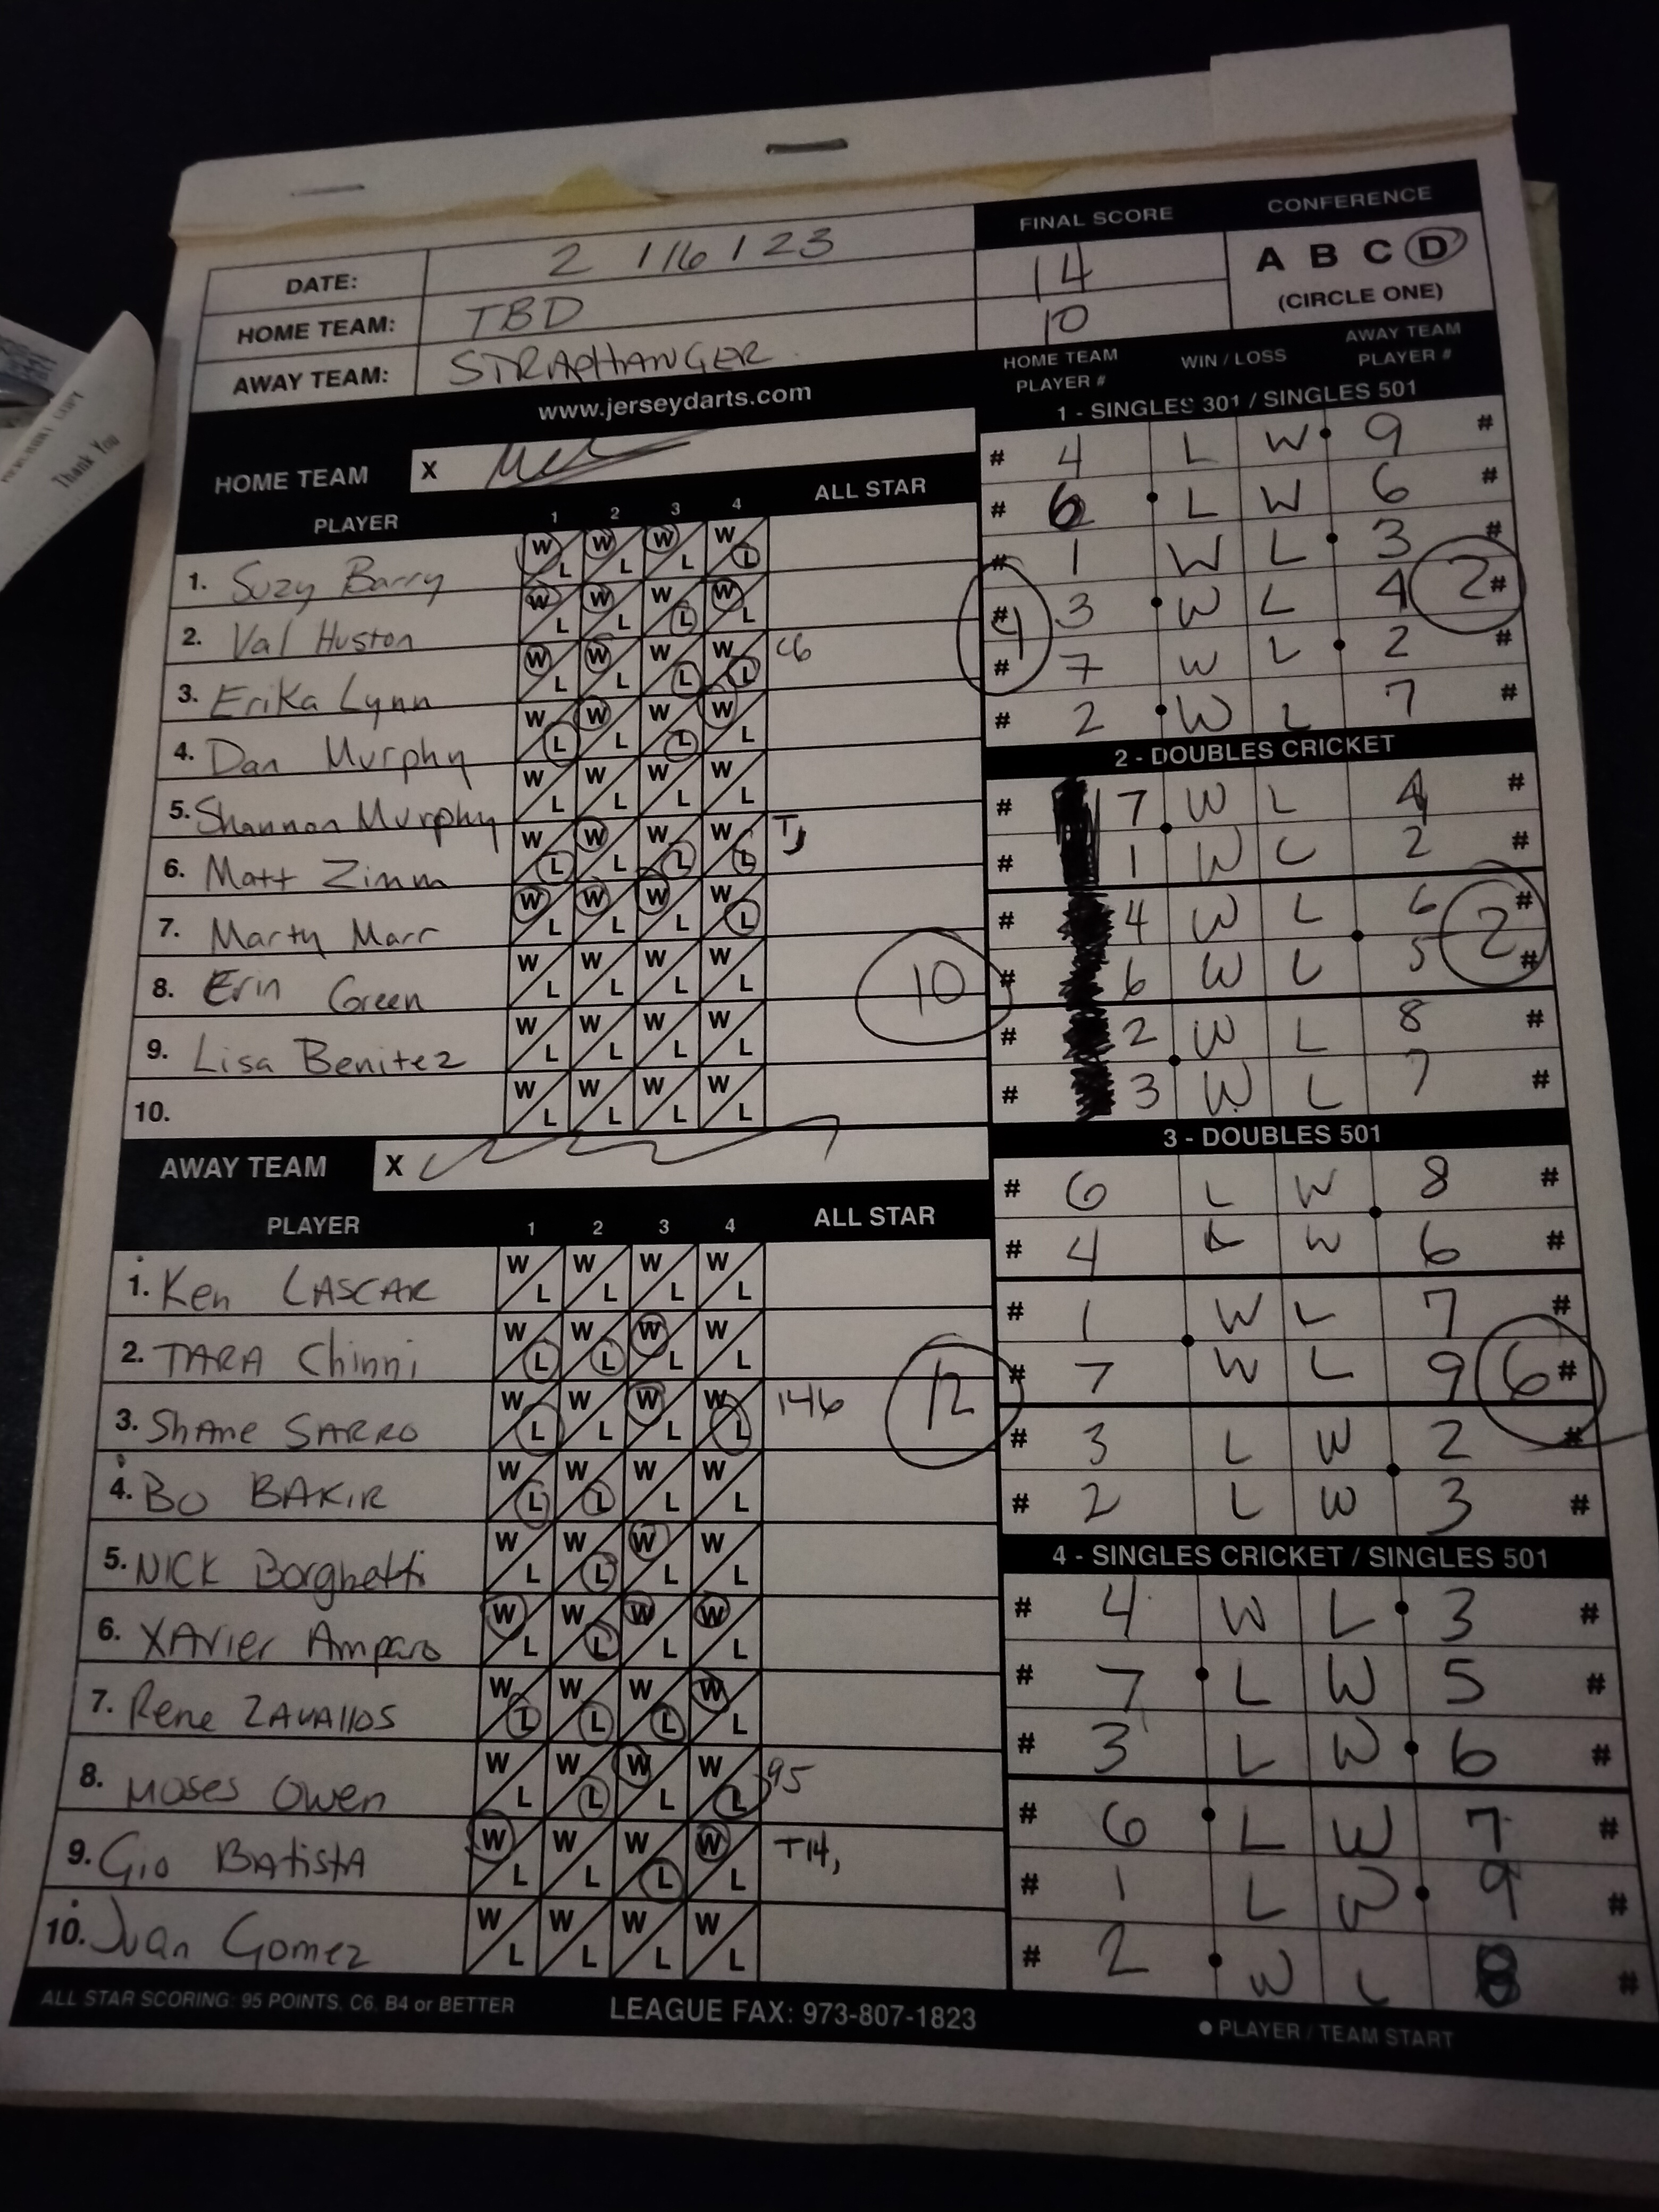 FINAL SCORE CONFERENCE
DATE: 2 / 16 / 23
14 A B C D
HOME TEAM: TBD
10 (CIRCLE ONE)
AWAY TEAM: STRAPHANGER
www.jerseydarts.com
HOME TEAM PLAYER # WIN / LOSS AWAY TEAM PLAYER #
HOME TEAM X
PLAYER 1 2 3 4 ALL STAR
1. Suzy Barry W L W L W L W L
2. Val Huston W L W L W L W L
3. Erika Lynn W L W L W L W L C6
4. Dan Murphy W L W L W L W L
5. Shannon Murphy W L W L W L W L
6. Matt Zimm W L W L W L W L
7. Marty Marr W L W L W L W L
8. Erin Green W L W L W L W L
10
9. Lisa Benitez W L W L W L W L
10. W L W L W L W L
AWAY TEAM X
PLAYER 1 2 3 4 ALL STAR
1. Ken LASCAR W L W L W L W L
2. TARA Chinni W L W L W L W L
3. SHANE SARRO W L W L W L W L 146
12
4. BO BAKIR W L W L W L W L
5. NICK Borghetti W L W L W L W L
6. XAvier Amparo W L W L W L W L
7. Rene ZAVAllOS W L W L W L W L
8. Moses Owen W L W L W L W L 95
9. Gio BAtistA W L W L W L W L T14,
10. Juan Gomez W L W L W L W L
ALL STAR SCORING: 95 POINTS, C6, B4 or BETTER LEAGUE FAX: 973-807-1823
1 - SINGLES 301 / SINGLES 501
# 4 L W 9 #
# 6 L W 6 #
# 1 W L 3 #
# 3 W L 4 #
4 2
# 7 W L 2 #
# 2 W L 7 #
2 - DOUBLES CRICKET
# 7 W L 4 #
# 1 W L 2 #
# 4 W L 6 #
2
# 6 W L 5 #
# 2 W L 8 #
# 3 W L 7 #
3 - DOUBLES 501
# 6 L W 8 #
# 4 L W 6 #
# 1 W L 7 #
# 7 W L 9 #
6
# 3 L W 2 #
# 2 L W 3 #
4 - SINGLES CRICKET / SINGLES 501
# 4 W L 3 #
# 7 L W 5 #
# 3 L W 6 #
# 6 L W 7 #
# 1 L W 9 #
# 2 W L 8 #
● PLAYER / TEAM START
Thank You